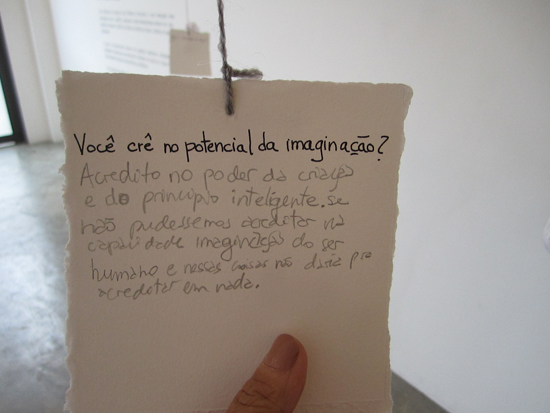 Você crê no potencial da imaginação?
Acredito no poder da criação
e do princípio inteligente. se
não pudessemos acreditar na
capacidade imaginação do ser
humano e nessas coisas não daria pra
acreditar em nada.